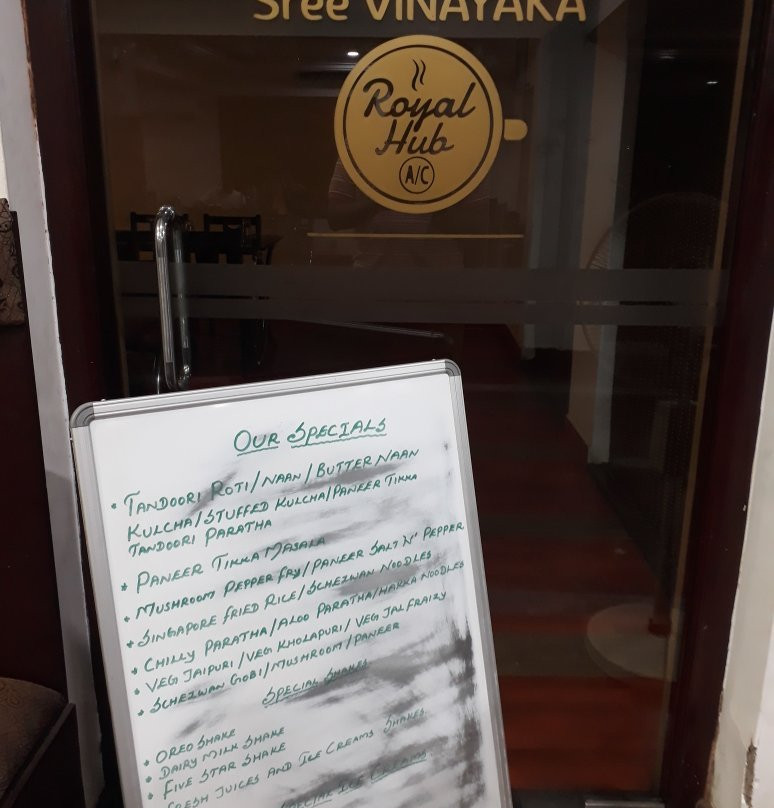 Sree VINAYAKA
Royal
Hub
A/C
OUR SPECIALS
• TANDOORI ROTI/NAAN/BUTTER NAAN
KULCHA/STUFFED KULCHA/PANEER TIKKA
TANDOORI PARATHA
• PANEER TIKKA MASALA
• MUSHROOM PEPPER FRY/PANEER SALT N' PEPPER
• SINGAPORE FRIED RICE/SCHEZWAN NOODLES
• CHILLY PARATHA/ALOO PARATHA/HAKKA NOODLES
• VEG JAIPURI/VEG KHOLAPURI/VEG JALFRAIZY
• SCHEZWAN GOBI/MUSHROOM/PANEER
SPECIAL SHAKES
• OREO SHAKE
• DAIRY MILK SHAKE
• FIVE STAR SHAKE
FRESH JUICES AND ICE CREAMS SHAKES
SPECIAL ICE CREAMS